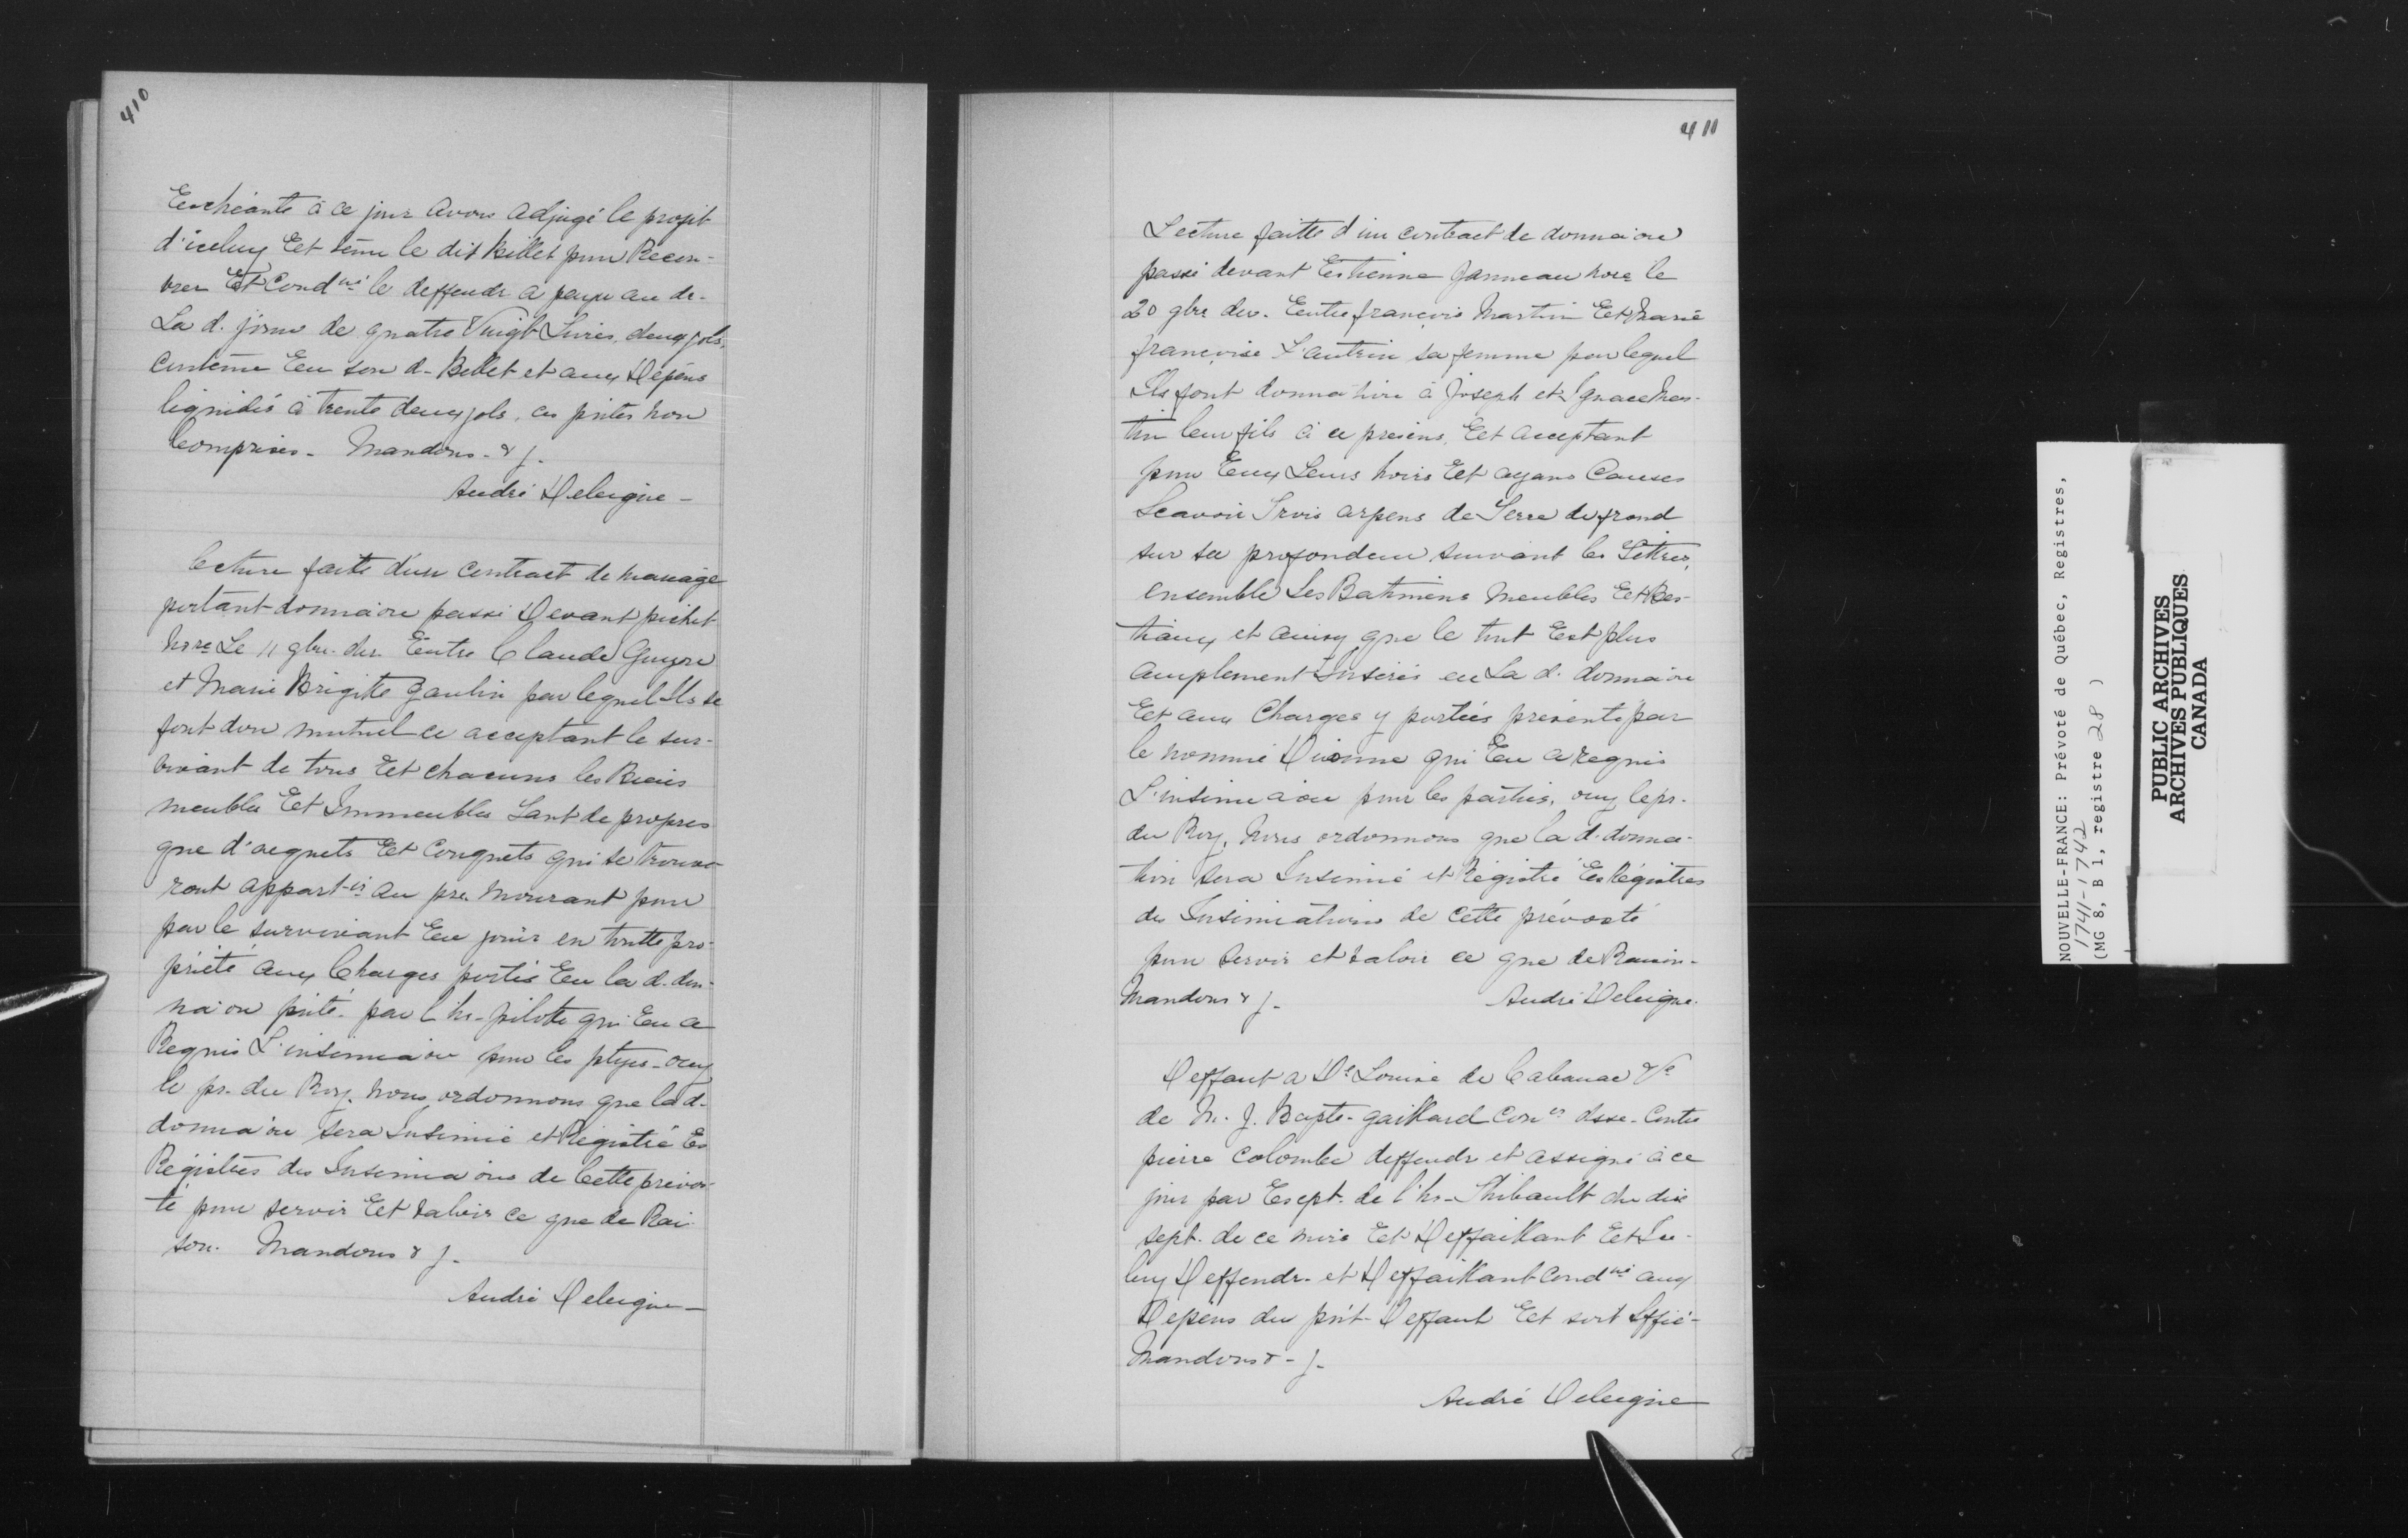 410
Eschéante à ce jour avons adjugé le profit
d'iceluy Et tenu le dit billet pour Recon-
nu Et Cond né le deffendr a payer au dr.
La d. somme de quatre Vingt Livres, deux sols,
contenue En son d- Billet et aux Dépens
liquidés à trente deux sols, ces pntes non
Comprises - Mandons - & j.
André Deleigne -
lecture faite d'un contract de mariage
portant donnaion passé Devant pichet
no re Le 11 9bre der Entre Claude Guyon
et Marie Brigitte Gaulin par lequel Ils se
font don mutuel ce acceptant le sur-
vivant de tous Et chacuns les Biens
meubles Et Immeubles Tant de propres
que d'acquets Et Conquets qui se trouve-
ront appart-ir au pre. mourant pour
par le survivant En jouir en toutte pro-
priété aux Charges portés En la d. don-
naion pnté. par l'hr-pilote qui En a
Requis L'insinuaion pour les ptyes - ouy
le pr. du Roy. nous ordonnons que la d-
donnaion sera Insinuée et Régistré Es
Régistres des Insinuaions de Cette prévos-
té pour servir Et valoir ce que de Rai-
son. Mandons & j.
André Deleigne -
411
Lecture faitte d'un contract de donnaion
passé devant Estienne Janneau nore le
20 9bre der. Entre françois Martin Et Marie
françoise L'autrin sa femme par lequel
Ils font donnation à Joseph et Ignace Mar-
tin leur fils à ce présens, Et acceptant
pour Eux Leurs hoirs Et ayans Causes
Scavoir Trois arpens de Terre de frond
sur sa profondeur suivant les Tittres,
ensemble Les Batimens Meubles Et Bes-
tiaux et ainsy que le tout Est plus
amplement Insérés en La d. donnaion
Et aux Charges y portées présenté par
le nommé Dionne qui En a requis
L'insinuaion pour les parties, ouy le pr.
du Roy, Nous ordonnons que la d. donna-
tion sera Insinué et Régistré Es Régistres
des Insinuations de cette prévosté
pour servir et valoir ce que de Raison -
Mandons & j - André Deleigne.
Deffaut a De Louise de Cabanac Ve
de M. J. Bapte - gaillard Con er dsse - Contre
pierre Colombe deffendr et assigné à ce
jour par Exept. de l'hr - Thibault du dix
sept. de ce mois Et Deffaillant Et Ice-
luy Deffendr - et Deffaillant Cond né aux
Dépens du pnt - Deffaut Et soit Siffié -
Mandons & - j -
André Deleigne
NOUVELLE-FRANCE: Prévoté de Québec, Registres,
1741-1742
(MG 8, B 1, registre 28 )
PUBLIC ARCHIVES
ARCHIVES PUBLIQUES
CANADA